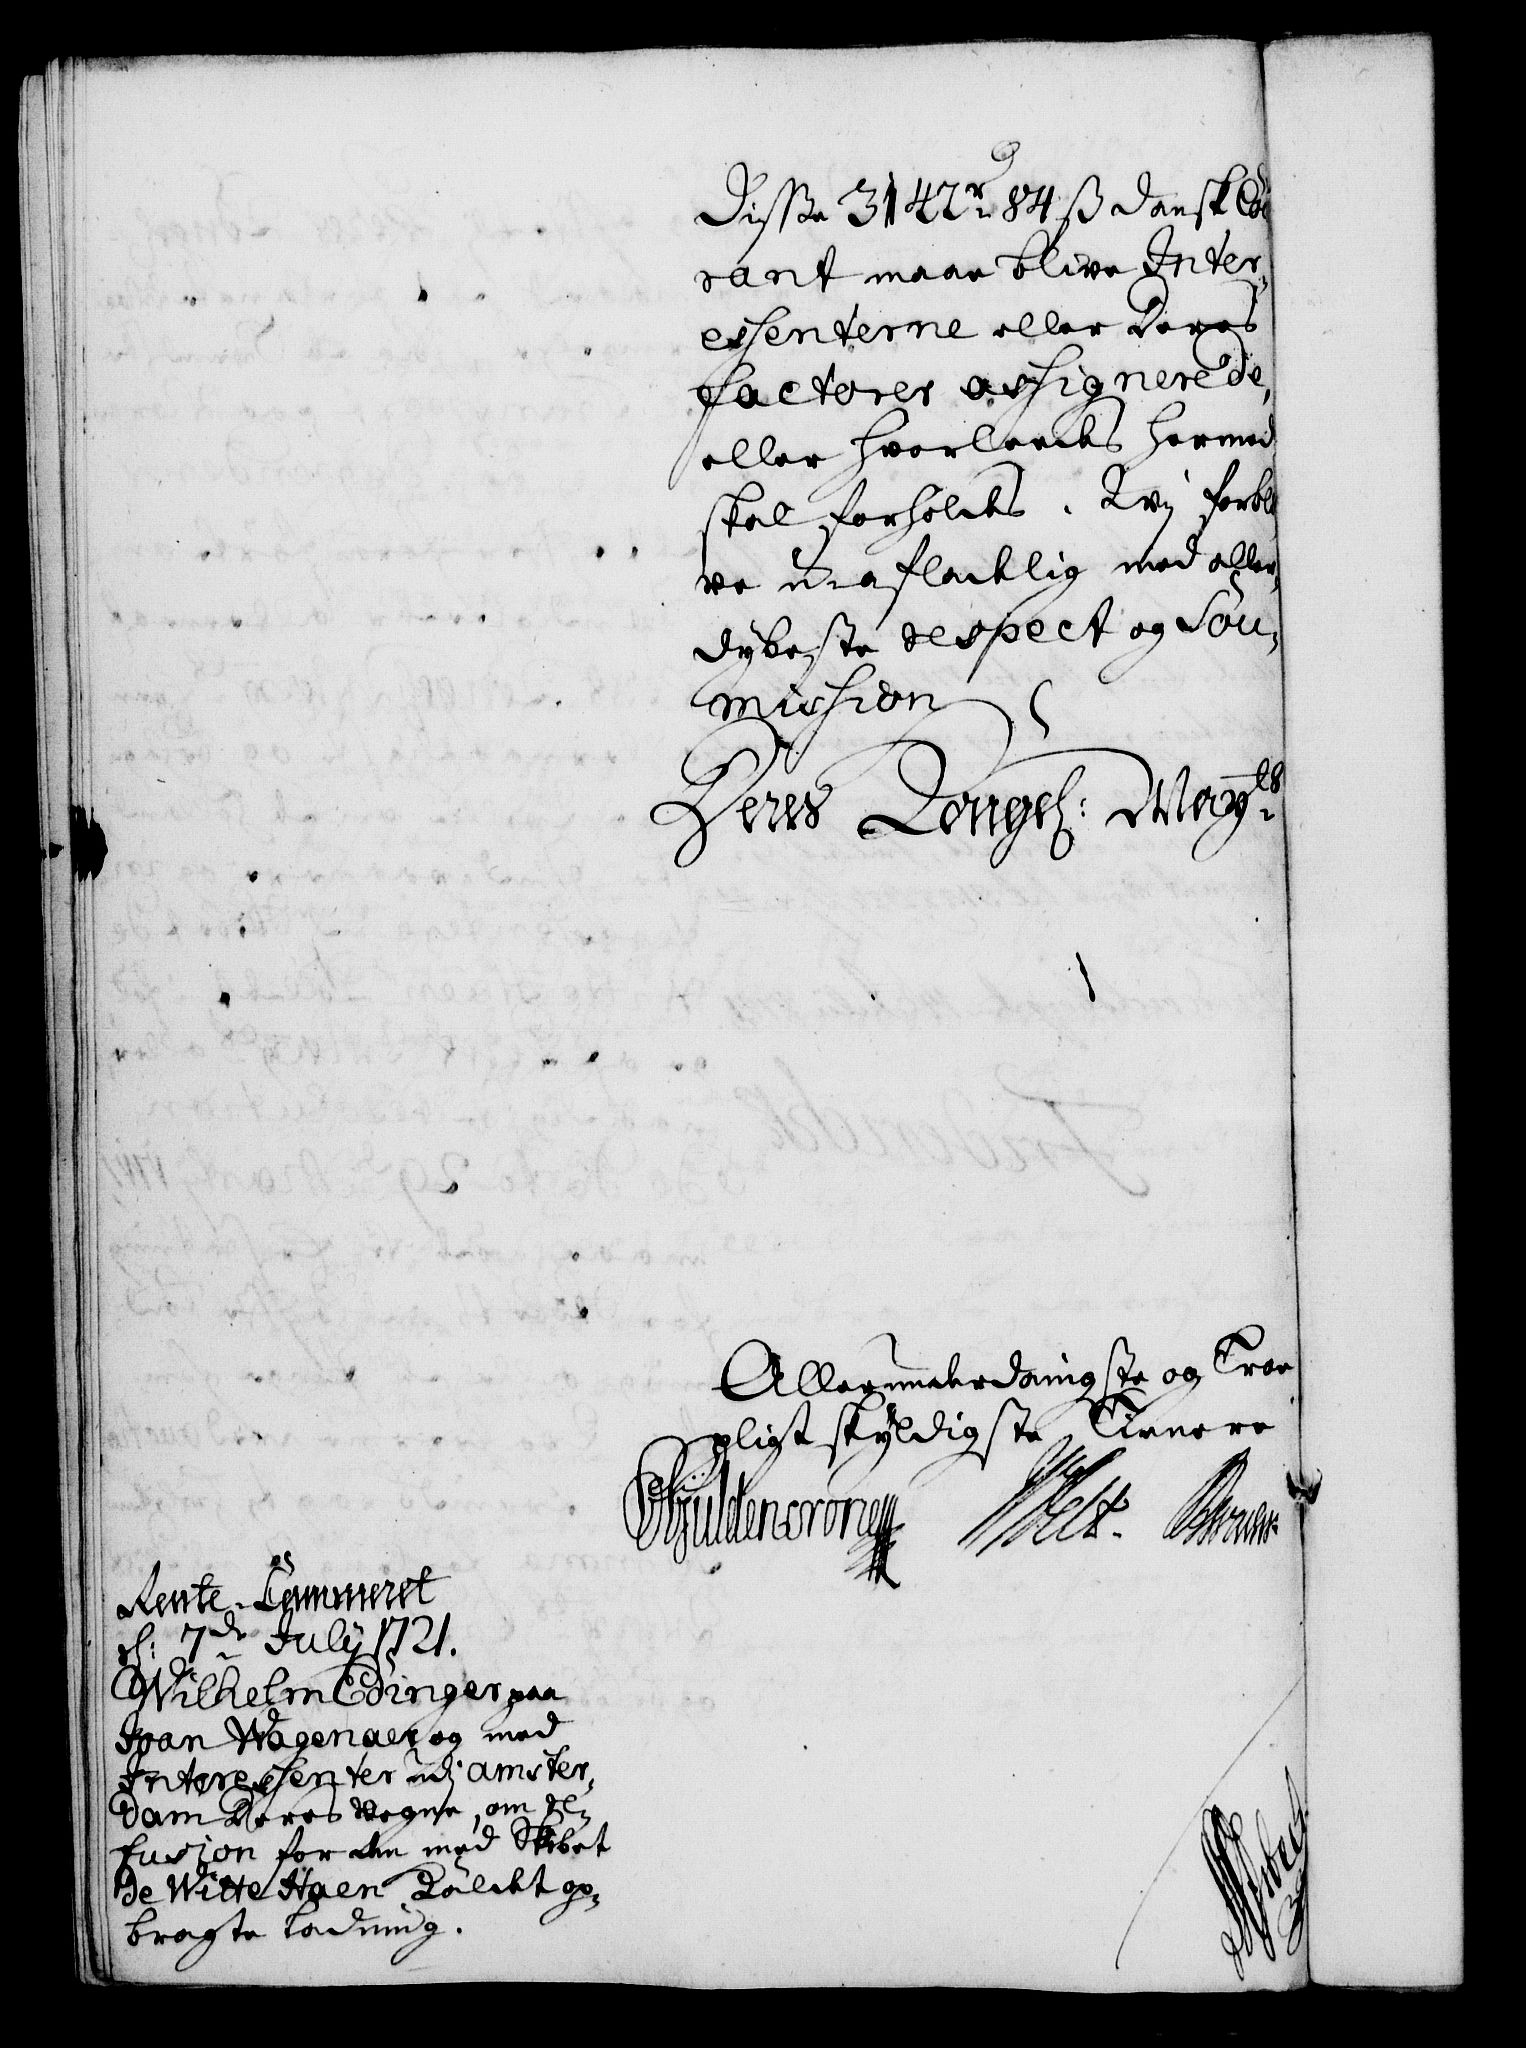 Disse 3142 rd 84 ß dansk Cou
rant maae blive Inter,
eshenterne eller deres
factorer ashignerede,
eller hvorledes hermed
skal forholdes. Wij forbli
ve u-afladelig med aller,
dybeste respect og Sou,
mishion
Deres Kongel: Mayts
Allerunderdanigste og Troe
pligt skyldigste Tienere
Gÿldencrone
Rente-Cammeret
d: 7de Julij 1721.
Wilhelm Edinger paa
Joan Wagenaer og med
Intereshenter udj Amster,
dam Deres vegne, om de
fusion for den med Skibet
De Witte Haen kaldet op,
bragte Ladning.